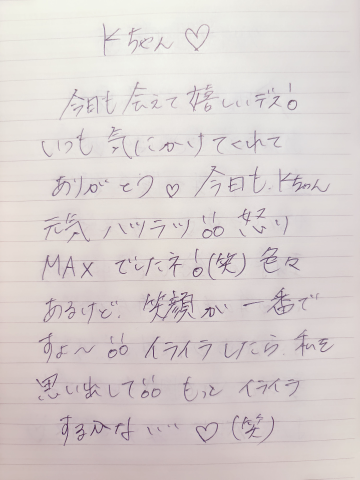 Kちゃん♡
今日も会えて嬉しいデス!
いつも気にかけてくれて
ありがとう♡今日も、Kちゃん
元気ハツラツ!!怒り
MAXでしたネ!(笑)色々
あるけど、笑顔が一番で
すよ〜!!イライラしたら、私を
思い出して!!もっとイライラ
するかな…♡(笑)